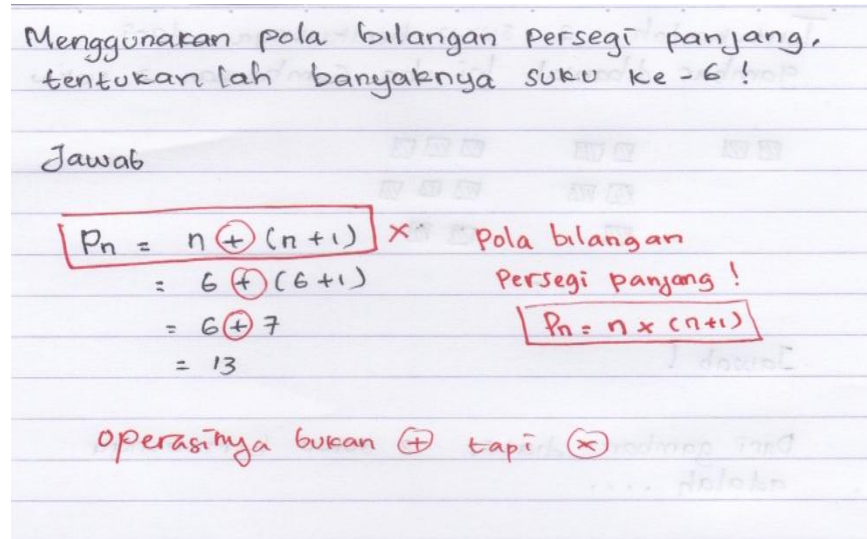 Menggunakan pola bilangan persegi panjang,
tentukanlah banyaknya suku ke-6 !
Jawab
Pn = n + (n+1) ×
= 6 + (6+1)
= 6 + 7
= 13
Pola bilangan
Persegi panjang !
Pn = n × (n+1)
operasinya bukan + tapi ×